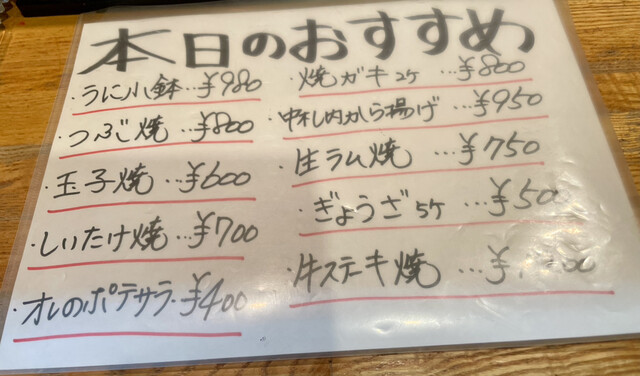 本日のおすすめ
・うに小鉢…¥980
・つぶご焼…¥800
・玉子焼…¥600
・しいたけ焼…¥700
・オレのポテサラ・¥400
・焼ガキ2ケ…¥800
・中札内から揚げ…¥950
・生ラム焼…¥750
・ぎょうざ5ケ…¥500
・牛ステーキ焼…